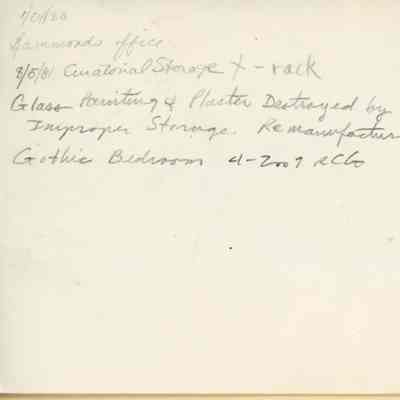 Hammonds office
8/5/81 Curatorial Storage X-rack
Glass Painting & Plaster Destroyed by
Improper Storage. Remanufactur
Gothic Bedroom 4-2009 RCG